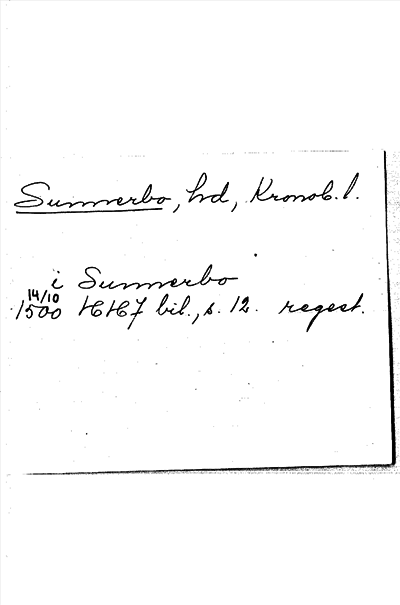 Sunnerbo, hd, Kronob. l.
i Sunnerbo
14/10
1500 HH7 bil., s. 12. regest.